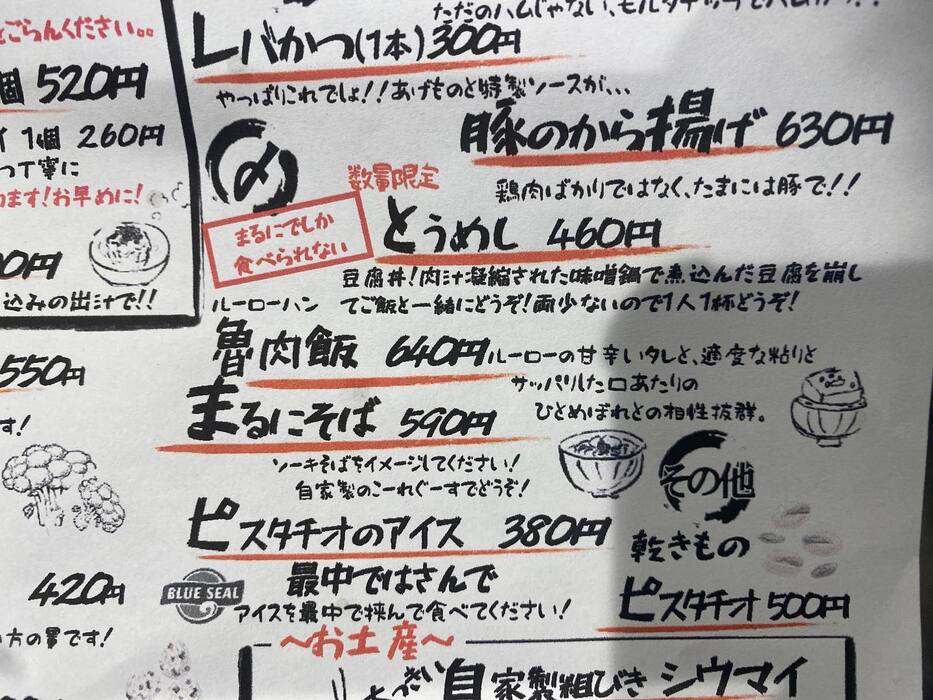 をごらんください。。
個 520円
イ 1個 260円
つ丁寧に
ます!お早めに!
0円
込みの出汁で!!
550円
す!
420円
方の胃です!
レバかつ(1本)300円
やっぱりこれでしょ!!あげものと特製ソースが、、、
豚のから揚げ 630円
鶏肉ばかりではなく、たまには豚で!!
〆
数量限定
まるにでしか
食べられない
とうめし 460円
豆腐丼!肉汁凝縮された味噌鍋で煮込んだ豆腐を崩し
てご飯と一緒にどうぞ!両少ないので1人1杯どうぞ!
ルーローハン
魯肉飯 640円
ルーローの甘辛いタレと、適度な粘りと
サッパリした口あたりの
ひとめぼれとの相性抜群。
まるにそば 590円
ソーキそばをイメージしてください!
自家製のこーれぐーすでどうぞ!
ピスタチオのアイス 380円
BLUE SEAL
最中ではさんで
アイスを最中で挟んで食べてください!
その他
乾きもの
ピスタチオ 500円
~お土産~
自家製粗びき シウマイ